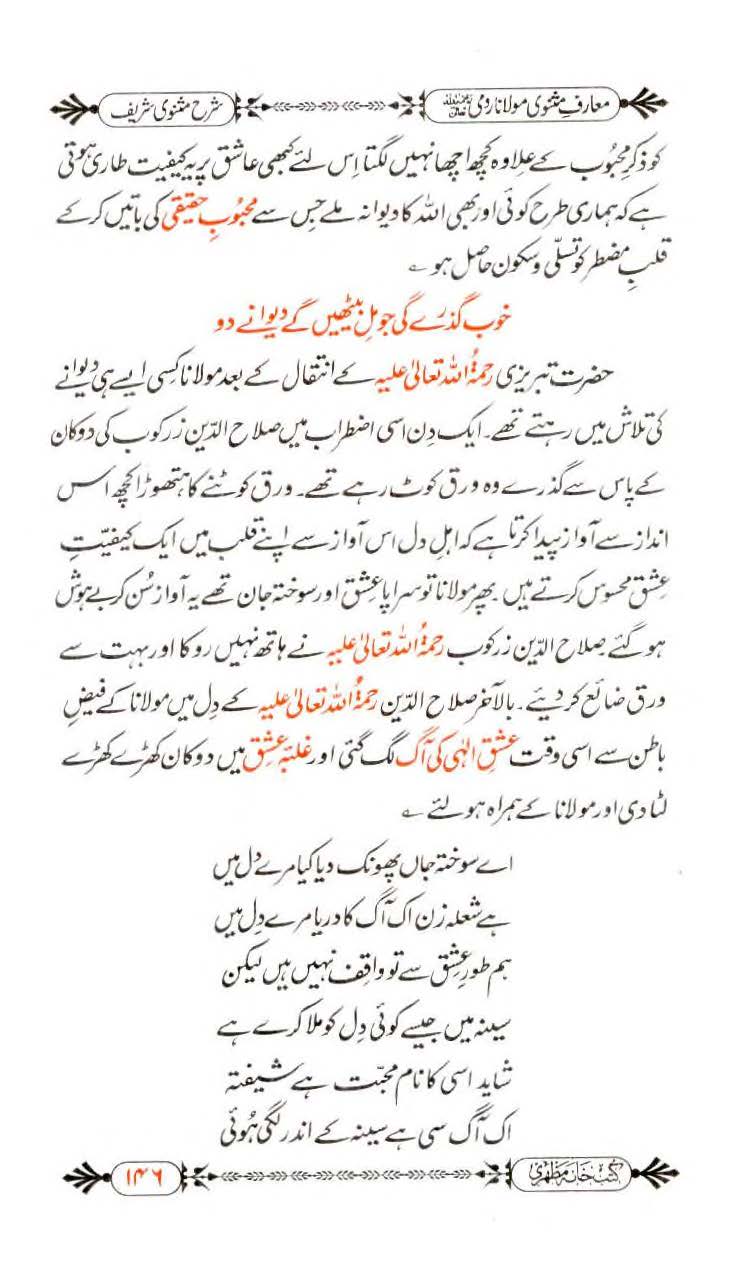 معارفِ مثنوی مولانا رومی رحمۃ اللہ علیہ
شرح مثنوی شریف
کو ذکرِ محبُوب کے علاوہ کچھ اچھا نہیں لگتا اِس لئے کبھی عاشق پر یہ کیفیت طاری ہوتی
ہے کہ ہماری طرح کوئی اور بھی اللہ کا دیوانہ ملے جس سے محبُوبِ حقیقی کی باتیں کرکے
قلبِ مضطر کو تسلّی و سکون حاصل ہو ؎
خوب گذرے گی جو مِل بیٹھیں گے دیوانے دو
حضرت تبریزی رحمۃُ اللہ تعالیٰ علیہ کے انتقال کے بعد مولانا کِسی ایسے ہی دیوانے
کی تلاش میں رہتے تھے۔ ایک دِن اسی اضطراب میں صلاح الدّین زرکوب کی دوکان
کے پاس سے گذرے وہ ورق کوٹ رہے تھے۔ ورق کوٹنے کا ہتھوڑا کچھ اس
انداز سے آواز پیدا کرتا ہے کہ اہلِ دل اس آواز سے اپنے قلب میں ایک کیفیّتِ
عِشق محسوس کرتے ہیں۔ پھر مولانا تو سراپا عِشق اور سوختہ جان تھے یہ آواز سُن کر بے ہوش
ہوگئے۔ صلاح الدّین زرکوب رحمۃُ اللہ تعالیٰ علیہ نے ہاتھ نہیں روکا اور بہت سے
ورق ضائع کردیئے۔ بالآخر صلاح الدّین رحمۃُ اللہ تعالیٰ علیہ کے دِل میں مولانا کے فیضِ
باطن سے اسی وقت عشقِ الٰہی کی آگ لگ گئی اور غلبۂ عِشق میں دوکان کھڑے کھڑے
لٹادی اور مولانا کے ہمراہ ہولئے ؎
اے سوختہ جاں پھونک دیا کیا مرے دل میں
ہے شعلہ زن اک آگ کا دریا مرے دِل میں
ہم طورِ عِشق سے تو واقِف نہیں ہیں لیکن
سینہ میں جیسے کوئی دِل کو ملا کرے ہے
شاید اسی کا نام محبّت ہے شیفتہ
اک آگ سی ہے سینہ کے اندر لگی ہُوئی
کتب خانہ مظہری
۱۴۶